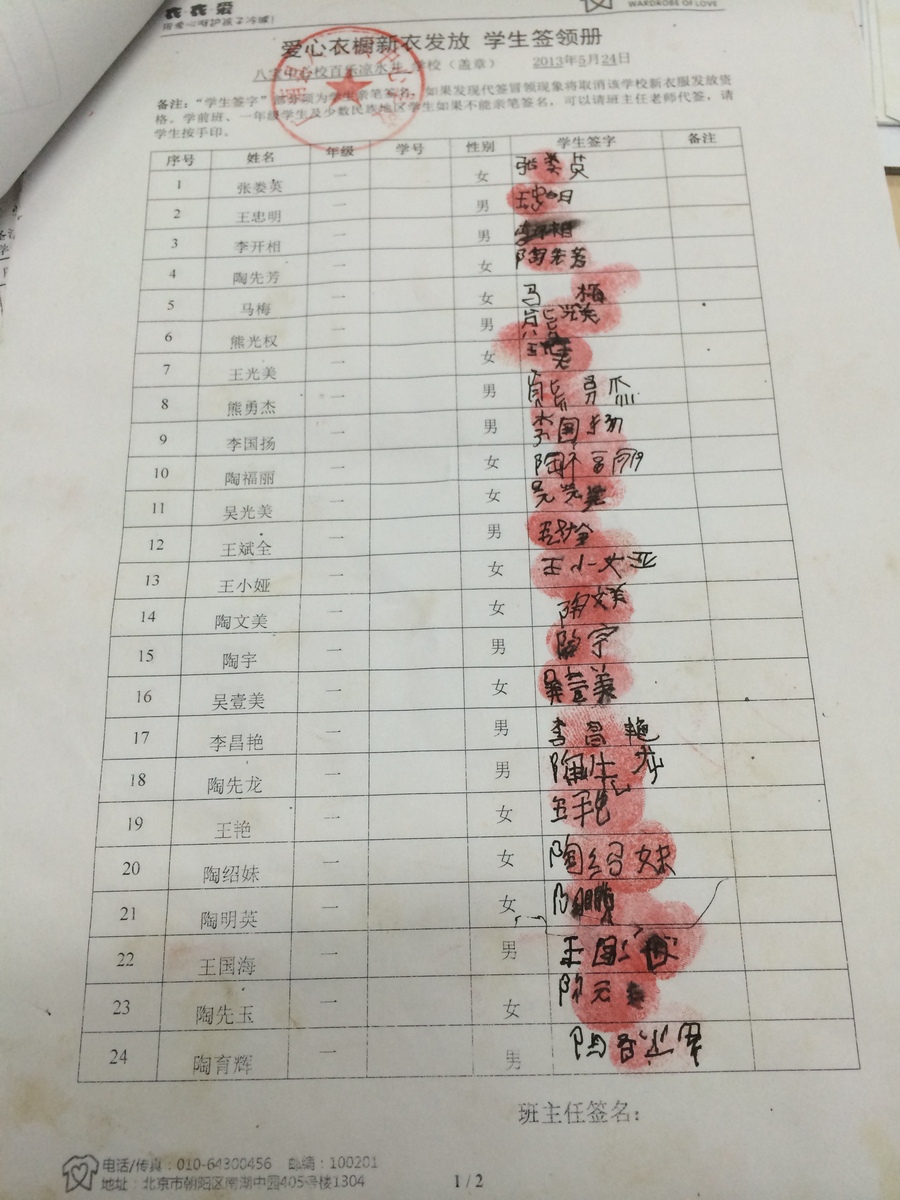 衣·衣·爱
WARDROBE OF LOVE
爱心衣橱新衣发放 学生签领册
八宝中心校百乐凉水井 学校（盖章） 2013年5月24日
备注："学生签字"部分须为学生亲笔签名，如果发现代签冒领现象将取消该学校新衣服发放资
格。学前班、一年级学生及少数民族地区学生如果不能亲笔签名，可以请班主任老师代签，请
学生按手印。
序号 姓名 年级 学号 性别 学生签字 备注
1 张娄英 一 女 张娄贞
2 王忠明 一 男 王忠明
3 李开相 一 男 李开相
4 陶先芳 一 女 陶先芳
5 马梅 一 女 马梅
6 熊光权 一 男
7 王光美 一 女
8 熊勇杰 一 男
9 李国扬 一 男 李国扬
10 陶福丽 一 女
11 吴光美 一 女 吴光美
12 王斌全 一 男
13 王小娅 一 女 王小娅
14 陶文美 一 女 陶文美
15 陶宇 一 男 陶宇
16 吴壹美 一 女 吴壹美
17 李昌艳 一 男 李昌艳
18 陶先龙 一 男 陶先龙
19 王艳 一 女 王艳
20 陶绍妹 一 女 陶绍妹
21 陶明英 一 女
22 王国海 一 男 王国海
23 陶先玉 一 女
24 陶育辉 一 男 陶育辉
班主任签名：
电话/传真：010-64300456 邮编：100201
地址：北京市朝阳区南湖中园405号楼1304
1 / 2